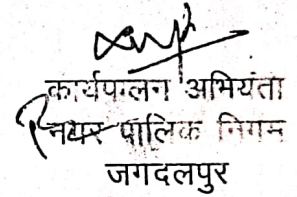 कार्यपालन अभियंता
नगर पालिक निगम
जगदलपुर